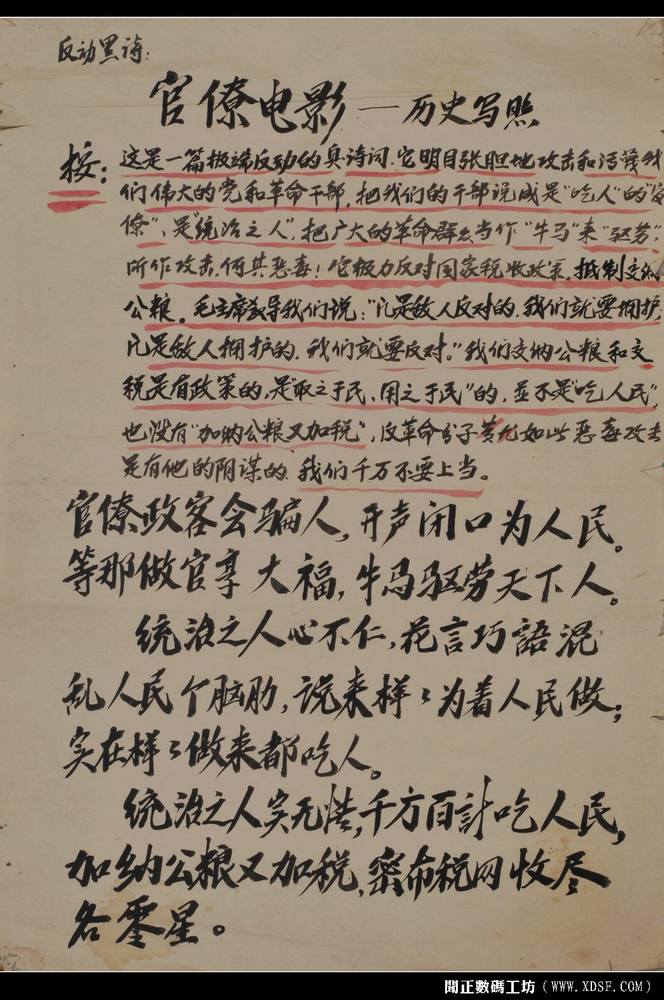 反动黑诗：
官僚电影—历史写照
按：这是一篇极端反动的臭诗词．它明目张胆地攻击和污蔑我
们伟大的党和革命干部．把我们的干部说成是“吃人”的“官
僚”、是“统治之人”．把广大的革命群众当作“牛马”来“驱劳”．
所作攻击．何其恶毒！它极力反对国家税收政策．抵制交纳
公粮．毛主席教导我们说：“凡是敌人反对的．我们就要拥护；
凡是敌人拥护的．我们就要反对。”我们交纳公粮和交
税是有政策的，是“取之于民、用之于民”的，並不是“吃人民”，
也没有“加纳公粮又加税”，反革命分子黄九如此恶毒攻击
是有他的阴谋的．我们千万不要上当。
官僚政客会骗人，开声闭口为人民。
等那做官享大福，牛马驱劳天下人。
统治之人心不仁，花言巧語混
乱人民个脑肋，说来样々为着人民做；
实在样々做来都吃人。
统治之人实无，千方百計吃人民，
加纳公粮又加税，密布税网收尽
各零星。
聞正數碼工坊（www.XDSF.COM）